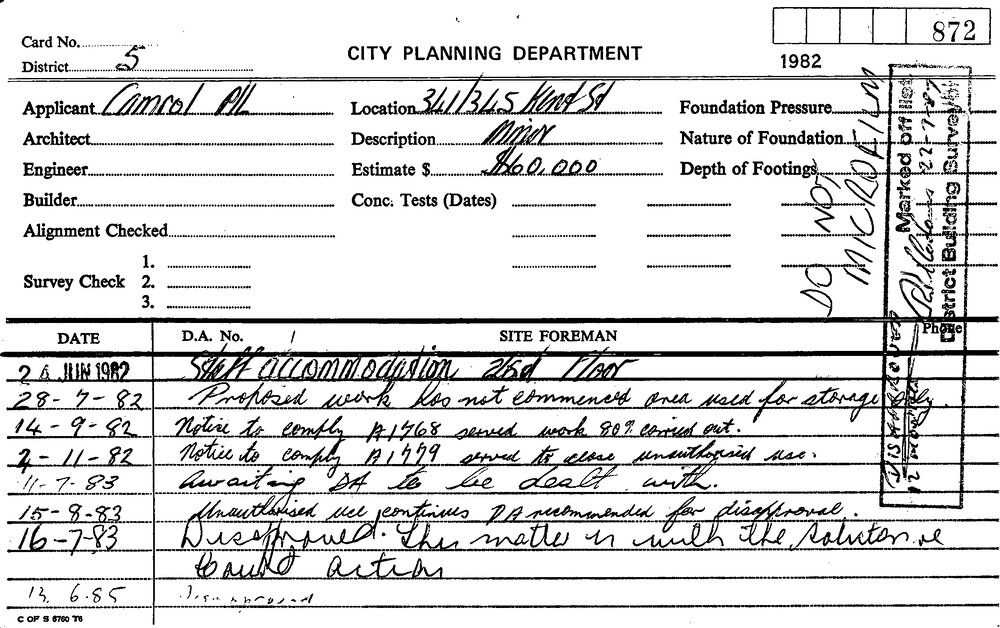 872
Card No.
District 5
CITY PLANNING DEPARTMENT
1982
Applicant Camrol P/L
Location 341/345 Kent St
Foundation Pressure
Architect
Description Minor
Nature of Foundation
Engineer
Estimate $ $60,000
Depth of Footings
Builder
Conc. Tests (Dates)
Alignment Checked
Survey Check
1.
2.
3.
DO NOT
MICROFILM
Marked off list
22-7-
District Building Surveyor
DISAPPROVED
12
DATE
D.A. No.
SITE FOREMAN
Phone
JUN 1982 Staff accommodation Floor
28-7-82 Proposed work has not commenced area used for storage only.
14-9-82 Notice to comply A1768 served work 80% carried out.
2-11-82 Notice to comply A1779 served to close unauthorised use.
11-7-83 Awaiting DA to be dealt with.
15-8-83 Unauthorised use continues DA recommended for disapproval.
16-7-83 Disapproved. This matter is with the Solicitor re
Court action
6.85 Disapproved
C OF S 6760 76